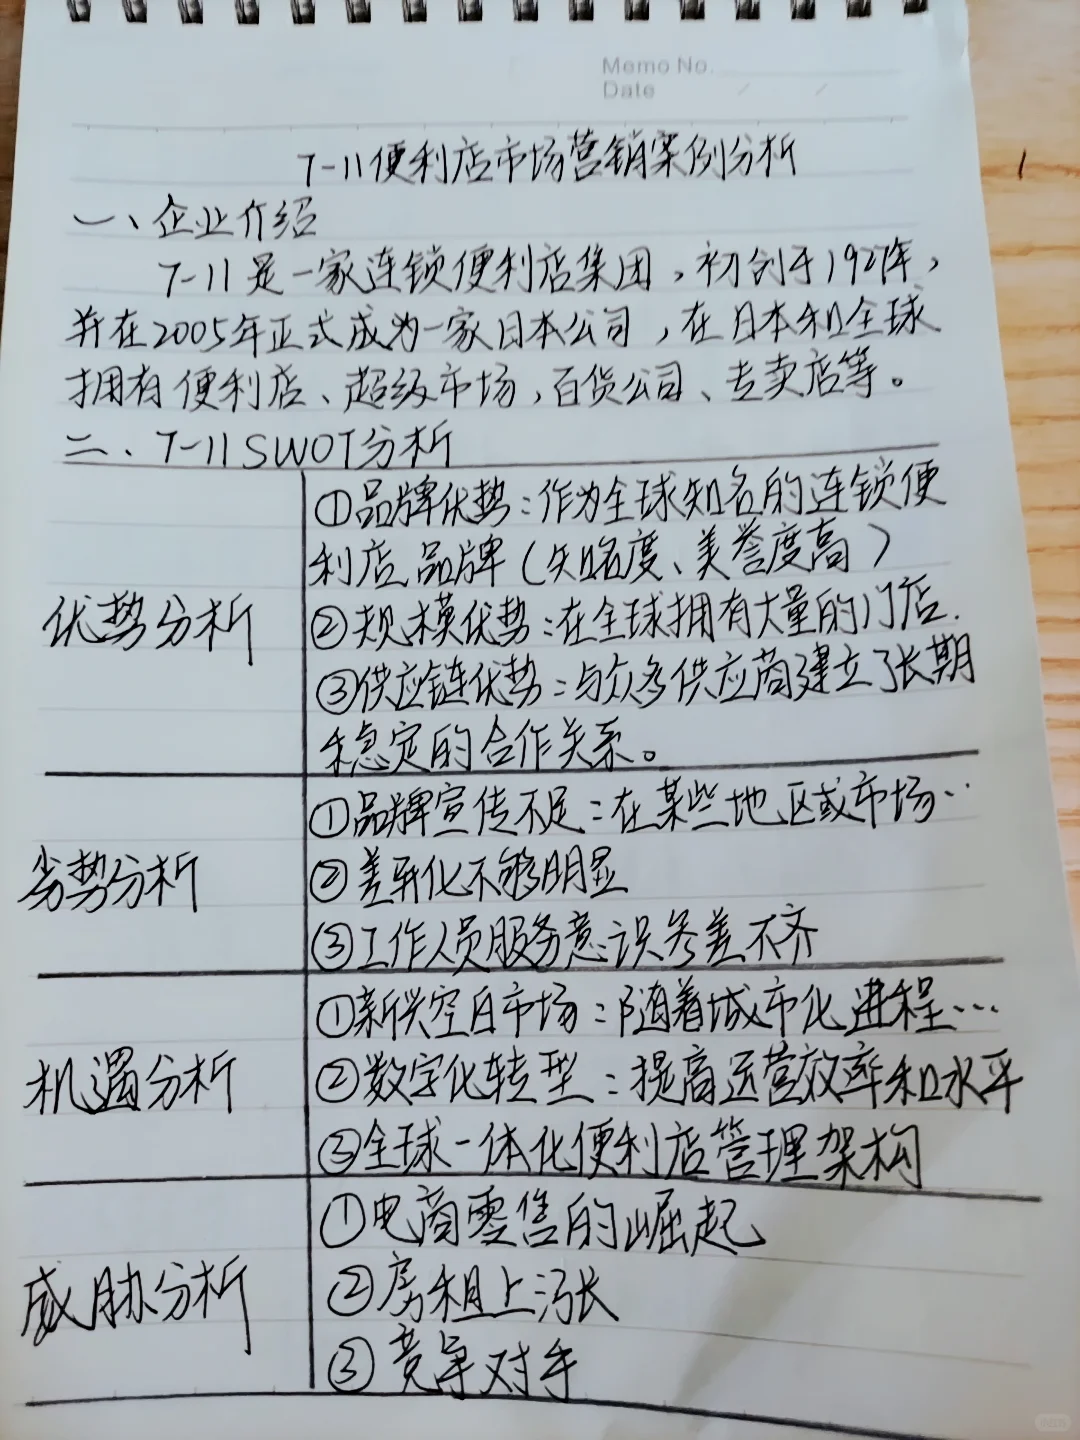 Memo No.
Date / /
7-11便利店市场营销案例分析
1
一、企业介绍
7-11是一家连锁便利店集团，初创于1927年，
并在2005年正式成为一家日本公司，在日本和全球
拥有便利店、超级市场，百货公司、专卖店等。
二、7-11 SWOT分析
优势分析
①品牌优势：作为全球知名的连锁便
利店品牌（知名度、美誉度高）
②规模优势：在全球拥有大量的门店.
③供应链优势：与众多供应商建立了长期
稳定的合作关系。
劣势分析
①品牌宣传不足：在某些地区或市场··
②差异化不够明显
③工作人员服务意识参差不齐
机遇分析
①新兴空白市场：随着城市化进程…
②数字化转型：提高运营效率和水平
③全球一体化便利店管理架构
威胁分析
①电商零售的崛起
②房租上涨
③竞争对手